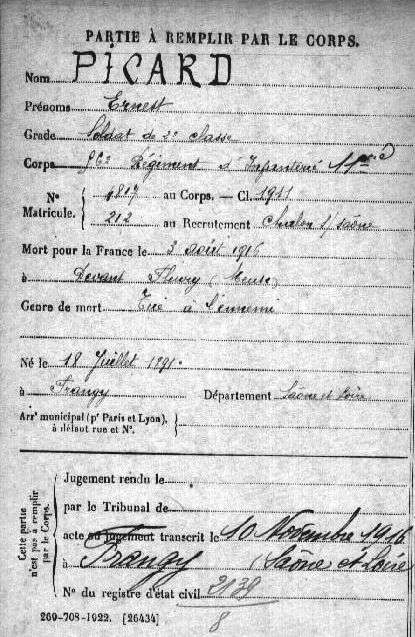 PARTIE À REMPLIR PAR LE CORPS.
Nom PICARD
Prénoms Ernest
Grade Soldat de 2e classe
Corps Régiment d'Infanterie
Nº Matricule. { 4817 au Corps. — Cl. 1911
212 au Recrutement Chalon s/ Saône
Mort pour la France le 3 août 1916
à Devant Fleury (Meuse)
Genre de mort Tué à l'ennemi
Né le 18 Juillet 1891
à Frangy Département Saône et Loire
Arrt municipal (pr Paris et Lyon), à défaut rue et Nº. }
Cette partie n'est pas à remplir par le Corps.
Jugement rendu le
par le Tribunal de
acte ou jugement transcrit le 10 Novembre 1916
à Frangy (Saône et Loire
Nº du registre d'état civil 2139
8
269-708-1922. [26434]